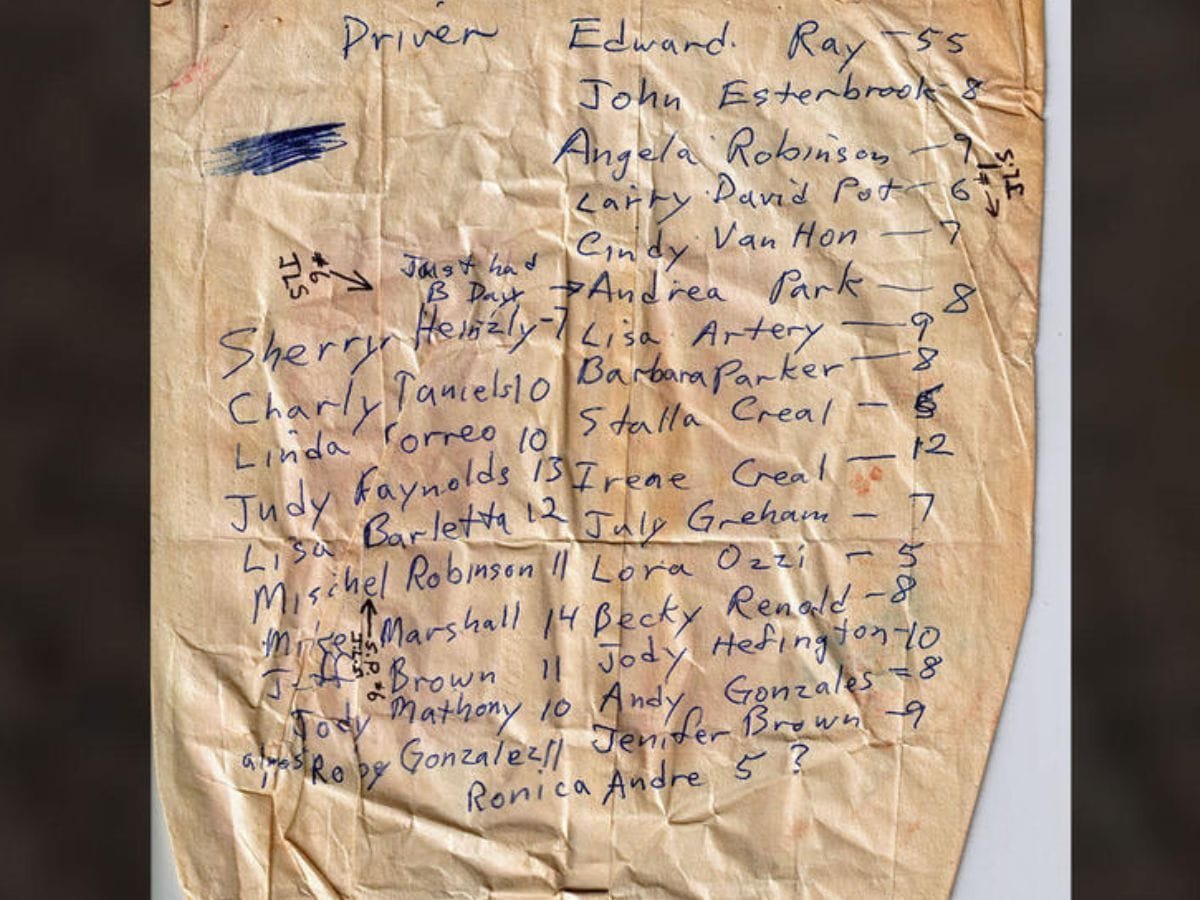 Driver Edward. Ray - 55
John Esterbrook - 8
Angela Robinson - 9
Larry David Pot - 6
Cindy Van Hon - 7
Just had
B Day → Andrea Park - 8
Lisa Artery - 9
Barbara Parker - 8
Stalla Creal -
Irene Creal - 12
July Greham - 7
Lora Ozzi - 5
Becky Renold - 8
Jody Hefington - 10
Andy Gonzales - 8
Jenifer Brown - 9
Ronica Andre 5 ?
Sherryr Heinzly - 7
Charly Taniels 10
Linda Torreo 10
Judy Faynolds 13
Lisa Barletta 12
Mischel Robinson 11
Marshall 14
Jeff Brown 11
Jody Mathony 10
Gonzalez 11
JLS
#6 →
JLS
#1 →
JLS
S.P. #6 →